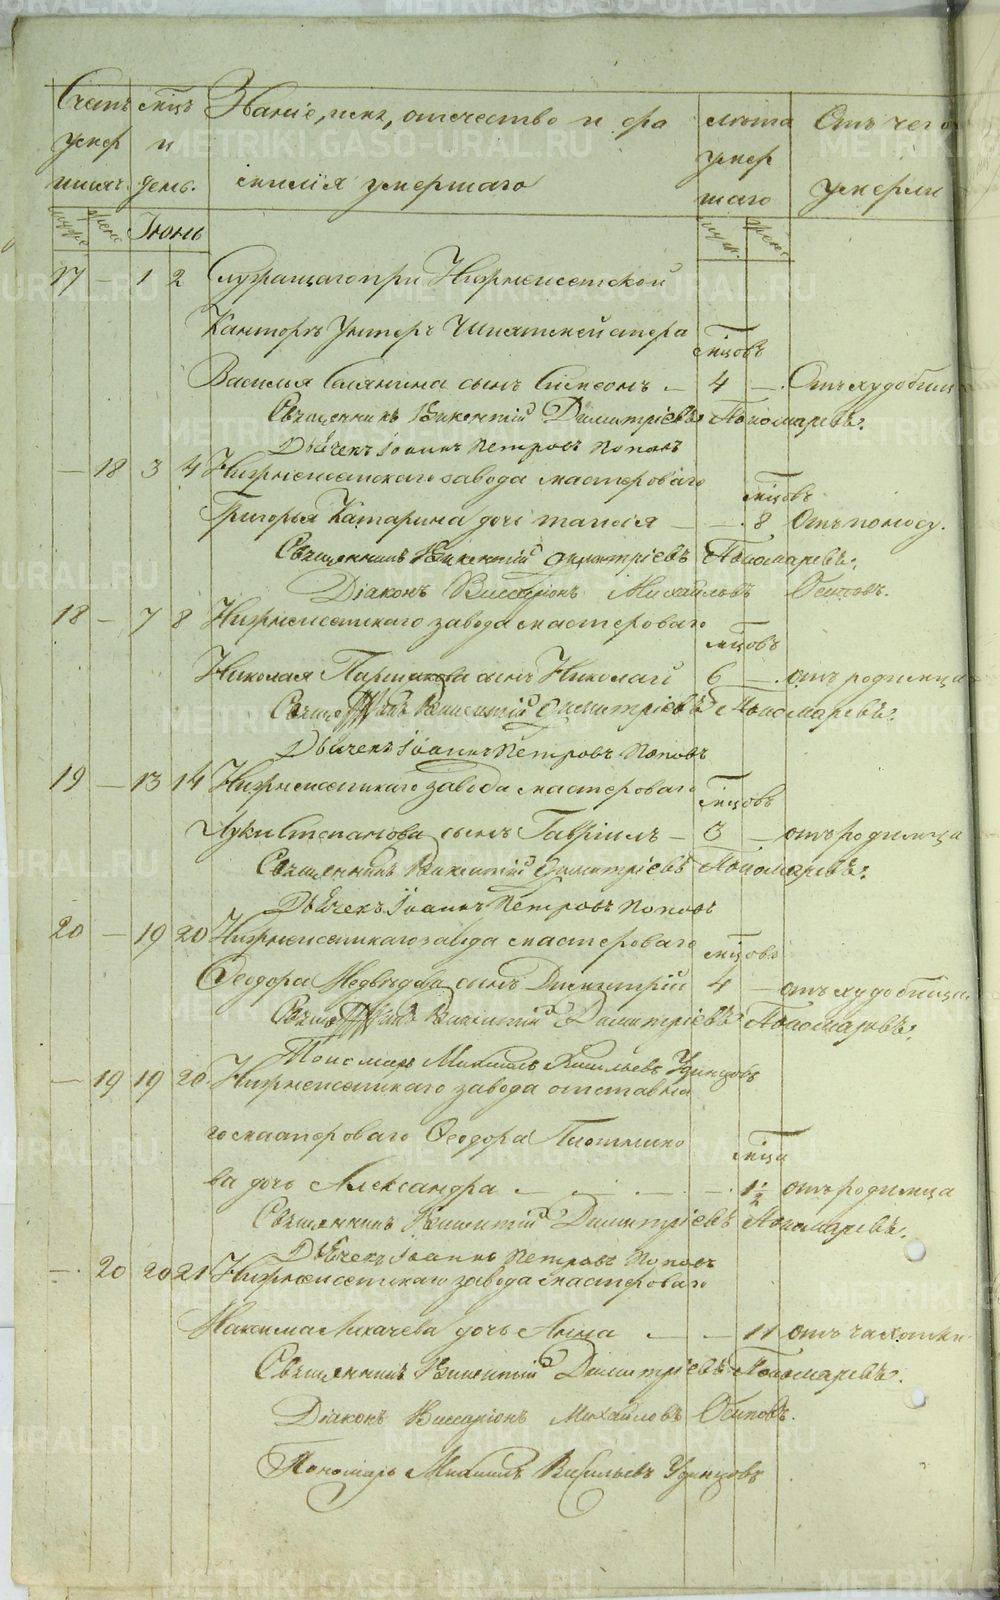 Счетъ мсцъ Званіе, имя, отчество и фа лѣта Отъ чего
умер и умер
шихъ. день. милія умершаго шаго умерли
Іюнь
17 — 1 2 Служащаго при Нижнеисетской
Канторѣ Унтеръ Шихтмейстера мсцовъ
Василья сынъ Симеонъ — 4 — Отъ худобищ
Священникъ Викентій Димитріевъ Пономаревъ.
Дьячекъ Іоаннъ Петровъ Поповъ
— 18 3 4 Нижнеисетскаго завода мастероваго мсцовъ
Григорья Катарина дочь Таисія — — 8 Отъ поносу.
Священникъ Викентій Димитріевъ Пономаревъ.
Діаконъ Виссаріонъ Михайловъ Осиповъ.
18 — 7 8 Нижнеисетскаго завода мастероваго мсцовъ
Николая Паршакова сынъ Николай 6 — отъ родимца
Викентій Димитріевъ Пономаревъ.
Дьячекъ Іоаннъ Петровъ Поповъ
19 — 13 14 Нижнеисетскаго завода мастероваго мсцовъ
Луки Степанова сынъ Гавріилъ — 3 — отъ родимца
Священникъ Викентій Димитріевъ Пономаревъ.
Дьячекъ Іоаннъ Петровъ Поповъ
20 — 19 20 Нижнеисетскаго завода мастероваго мсцовъ
Феодора Медвѣдева сынъ Димитрій 4 — отъ худобищи.
Викентій Димитріевъ Пономаревъ.
Пономарь Михаилъ Васильевъ Удинцовъ
— 19 19 20 Нижнеисетскаго завода отставна
го мастероваго Феодора Плотнико мсца
ва дочь Александра — — — — 1½ отъ родимца
Священникъ Викентій Димитріевъ Пономаревъ.
Дьячекъ Іоаннъ Петровъ Поповъ
— 20 20 21 Нижнеисетскаго завода мастероваго
Максима Лихачева дочь Анна — — 11 отъ чахотки
Священникъ Викентій Димитріевъ Пономаревъ.
Діаконъ Виссаріонъ Михайловъ Осиповъ.
Пономарь Михаилъ Васильевъ Удинцовъ
METRIKI.GASO-URAL.RU